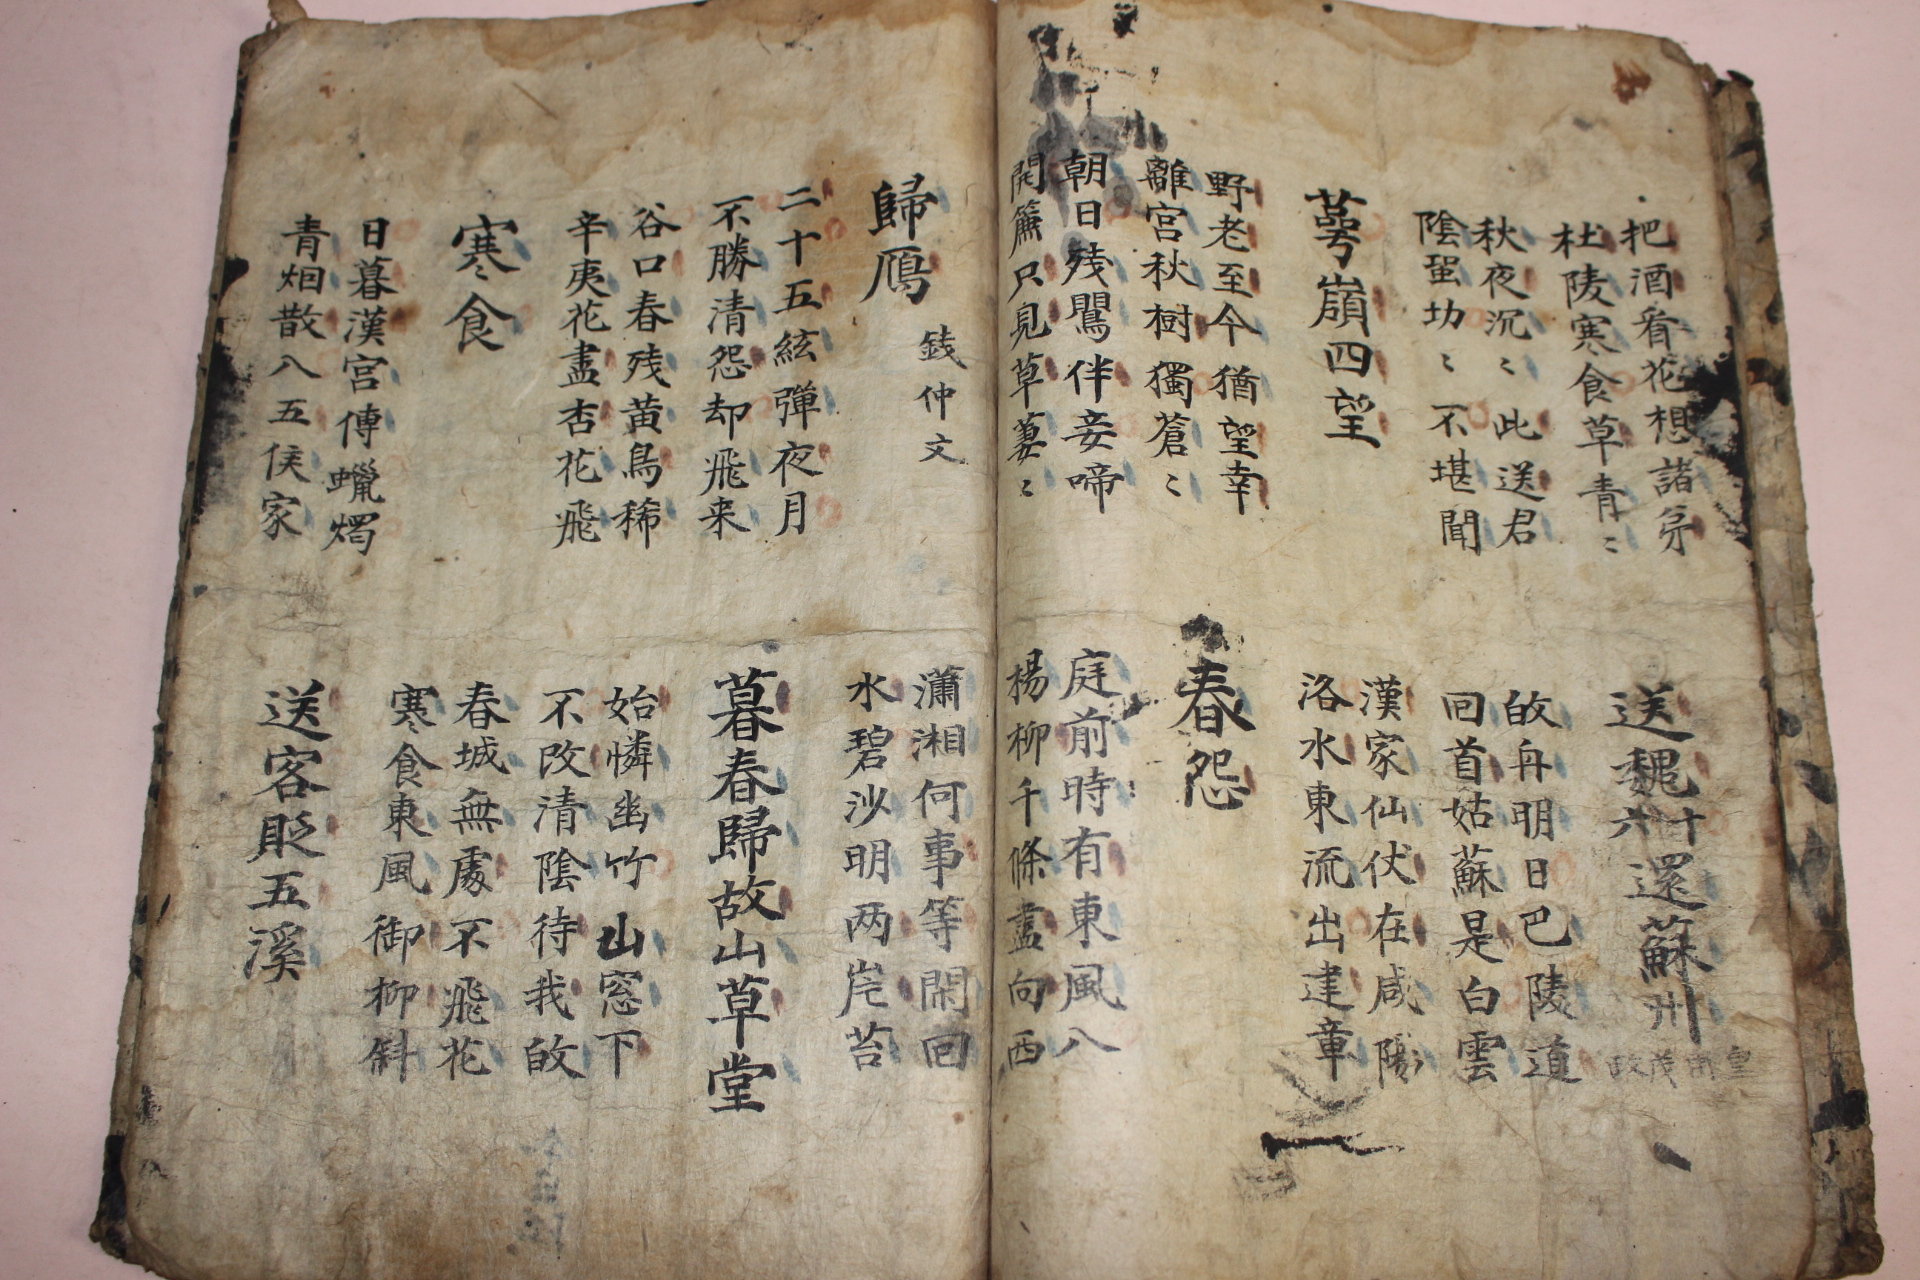 把酒看花想諸弟
杜陵寒食草青〻
送魏十六還蘇州
皇甫茂政
秋夜沉〻此送君
陰蛩切〻不堪聞
皈舟明日巴陵道
回首姑蘇是白雲
萼嶺四望
漢家仙仗在咸陽
洛水東流出建章
野老至今猶望幸
離宮秋樹獨蒼〻
春怨
朝日残鸎伴妾啼
開簾只見草萋〻
庭前時有東風入
楊柳千條盡向西
歸鴈
錢仲文
瀟湘何事等閑回
水碧沙明两岸苔
二十五絃彈夜月
不勝清怨却飛来
暮春歸故山草堂
谷口春残黄鳥稀
辛夷花盡杏花飛
始憐幽竹山窓下
不改清陰待我皈
寒食
春城無處不飛花
寒食東風御柳斜
日暮漢宮傳蠟燭
青烟散入五侯家
送客貶五溪